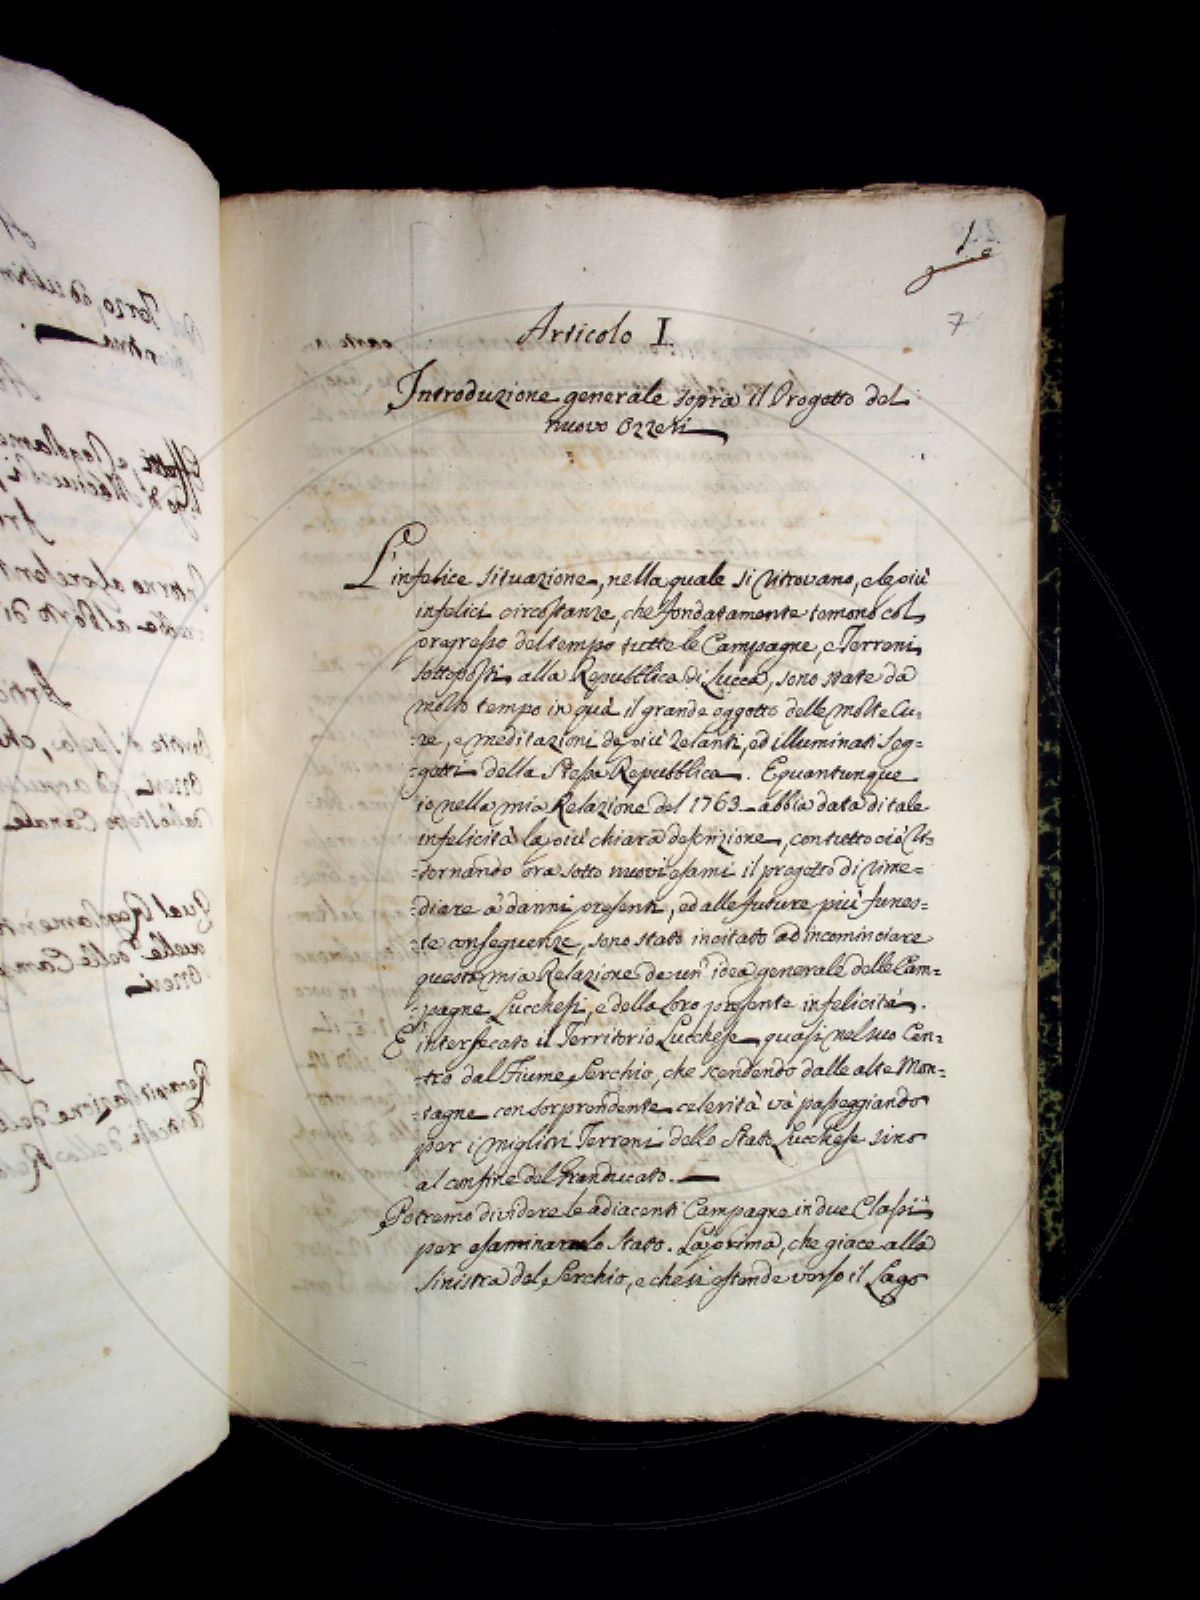 1.
7
Articolo I.
Introduzione generale sopra il Progetto del
nuovo Ozzeri
L'infelice situazione, nella quale si ritrovano, e le più
infelici circostanze, che fondatamente temono col
progresso del tempo tutte le Campagne, e Terreni
sottoposti alla Repubblica di Lucca, sono state da
molto tempo in quà il grande oggetto delle molte Cu=
=re, e meditazioni de più zelanti, ed illuminati Sog=
=getti della Stessa Repubblica. E quantunque
io nella mia Relazione del 1763 abbia data di tale
infelicità la più chiara descrizione, con tutto ciò ri=
=tornando ora sotto nuovi esami il progetto di rime=
=diare a' danni presenti, ed alle future più funes=
=te conseguenze, sono stato incitato ad incominciare
questa mia Relazione da un' idea generale delle Cam=
=pagne Lucchesi, e della loro presente infelicità.
E' intersecato il Territorio Lucchese quasi nel suo Cen=
=tro dal Fiume Serchio, che scendendo dalle alte Mon=
=tagne con sorprendente celerità và passeggiando
per i migliori Terreni dello Stato Lucchese sino
al confine del Granducato.
Potremo dividere le adiacenti Campagne in due Classi
per esaminarne lo stato. La prima, che giace alla
sinistra del Serchio, e che si estende verso il Lago
Terzo, ed ultim
Articolo